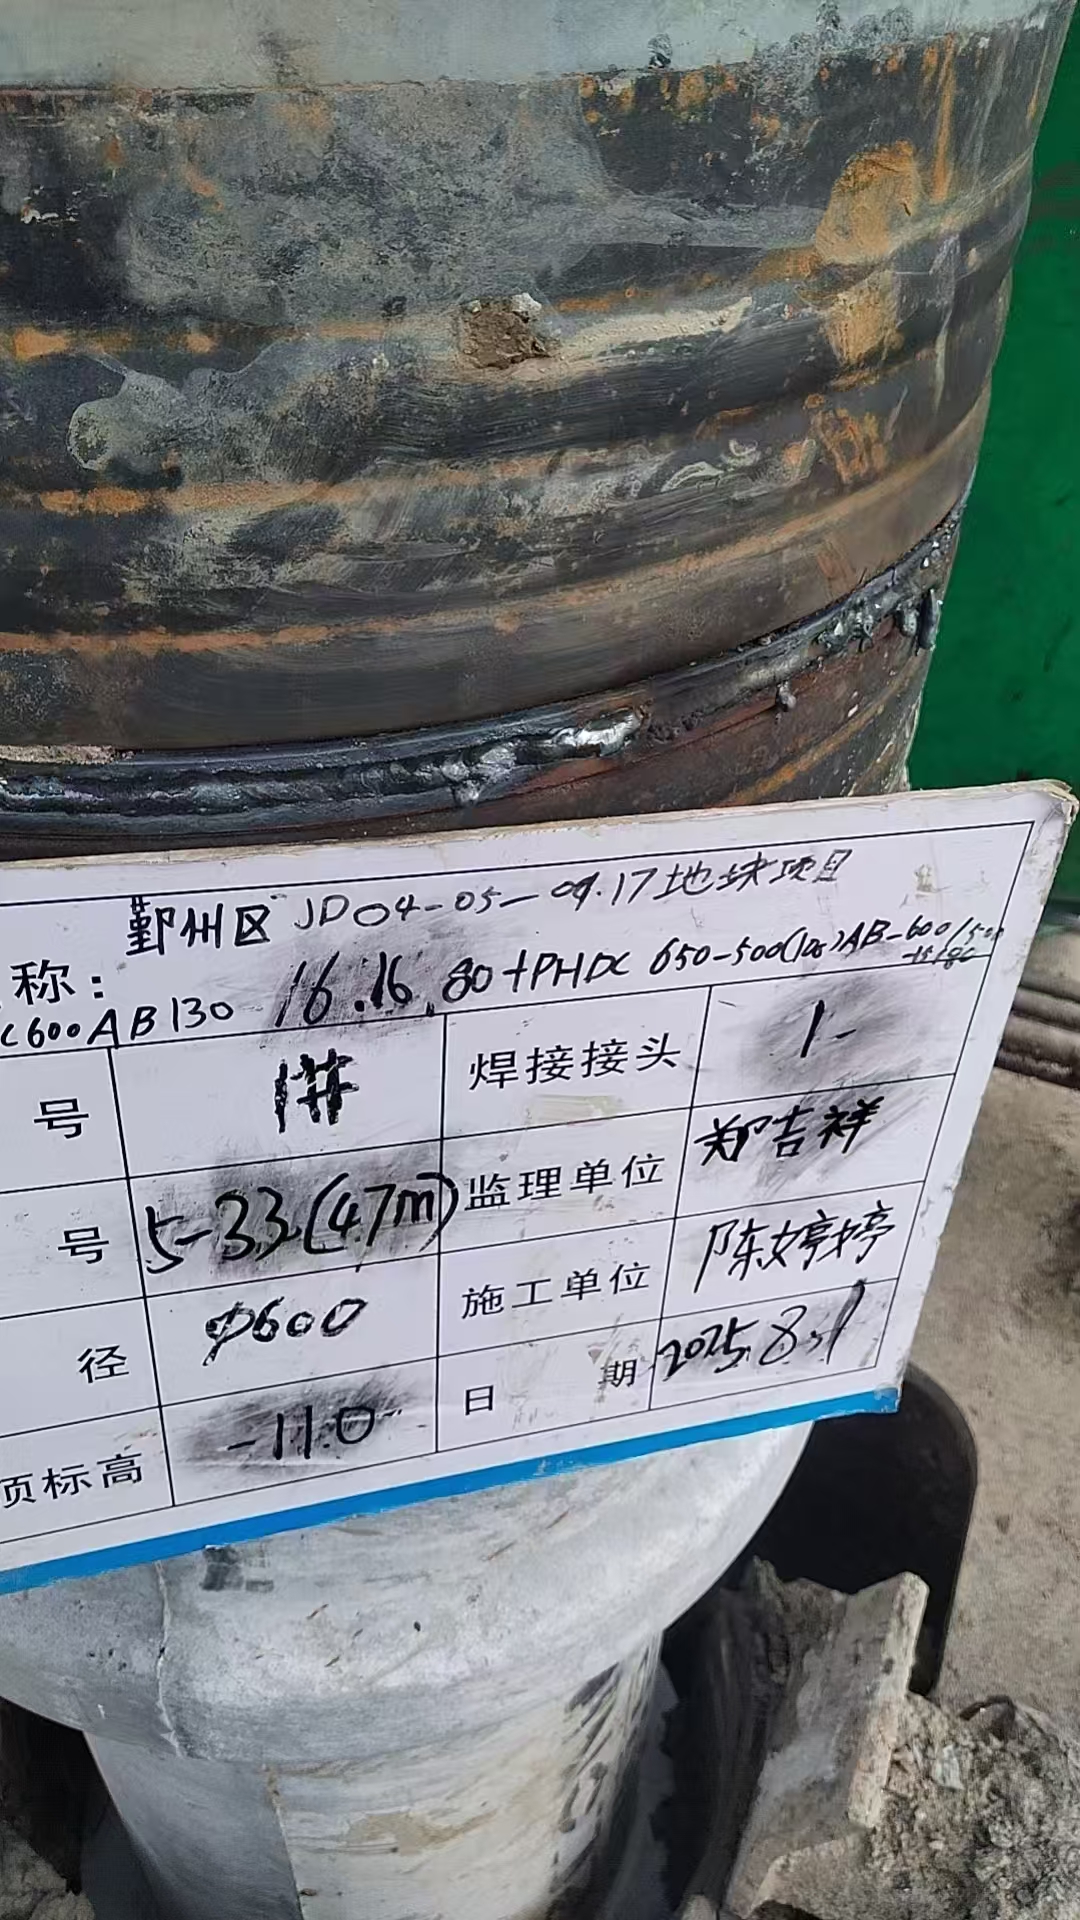 鄞州区JD04-05-09.17地块项目
称:
C600AB130 16.16.80+PHDC 650-500(125)AB-600/500
-15/80
号 1# 焊接接头 1-
号 5-33(47m) 监理单位 郑吉祥
径 φ600 施工单位 陈婷婷
顶标高 -110 日期 2025.8.1